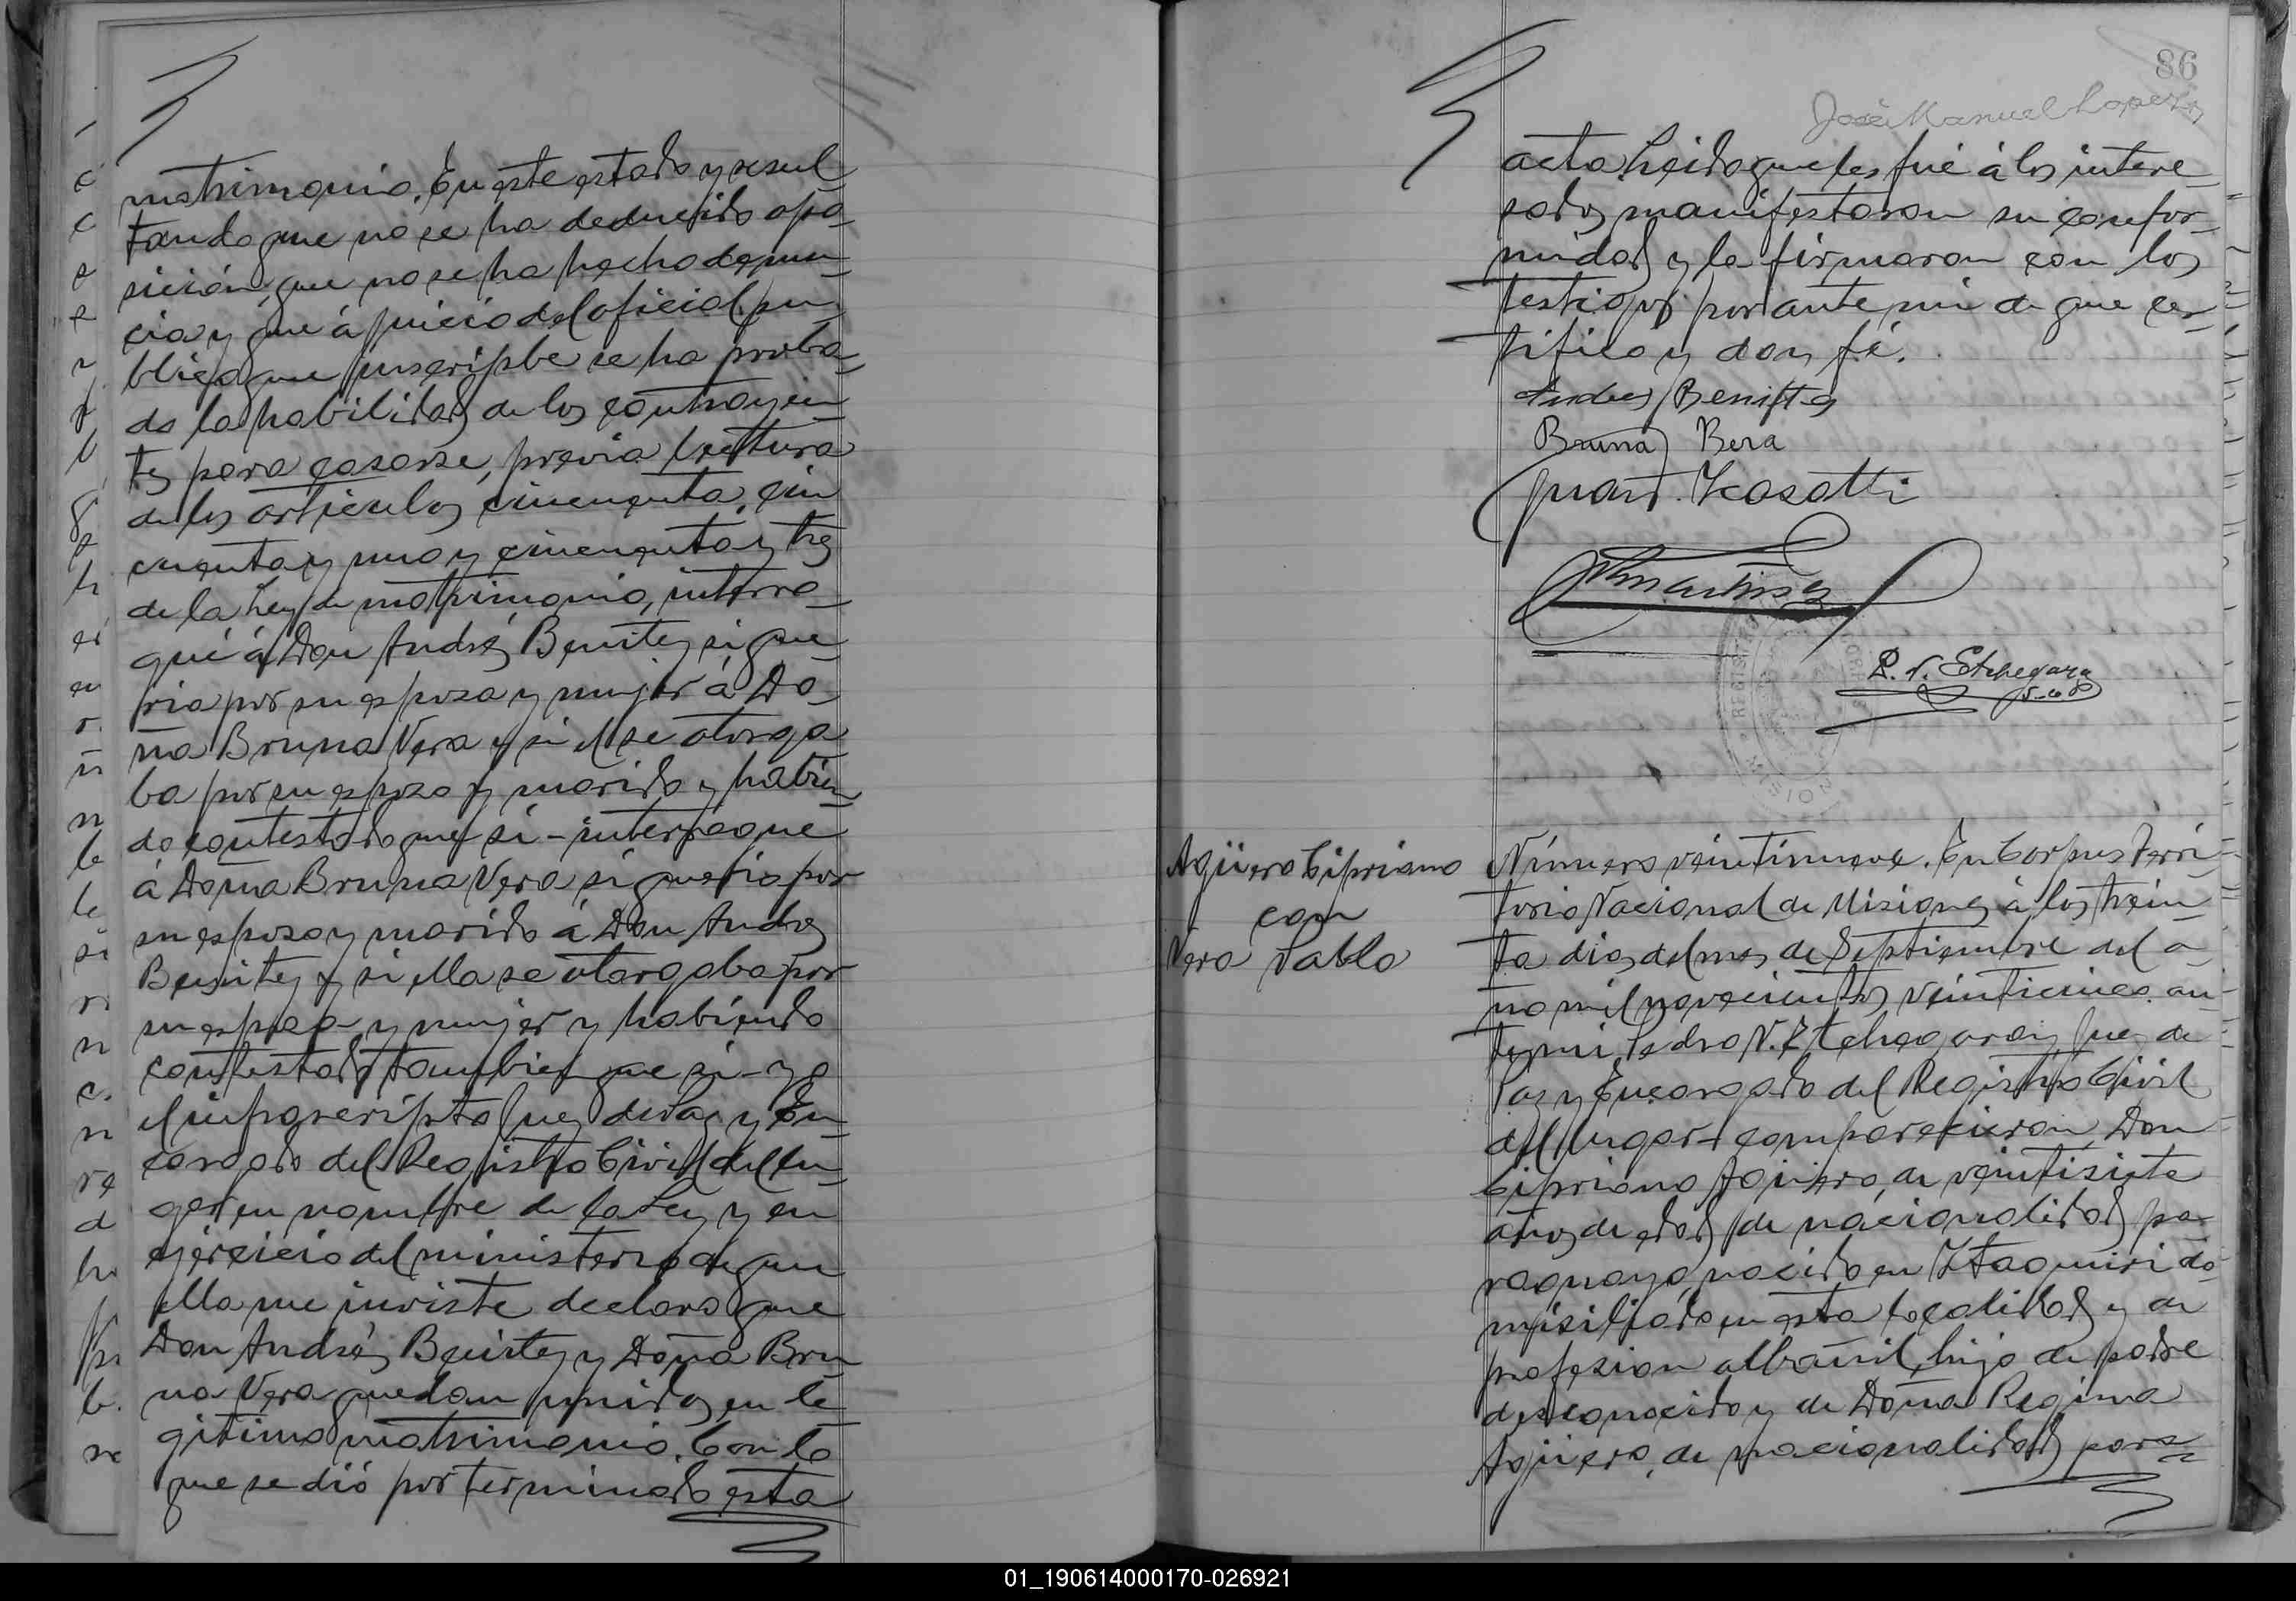 matrimonio. En este estado y resul
tando que no se ha deducido opo-
sicion, que no se ha hecho denun-
cia y que á juicio del oficial pu-
blico que suscribe se ha proba-
do la habilidad de los contrayen
tes para casarse, previa lectura
de los articulos cincuenta, cin
cuenta y uno y cincuenta y tres
de la Ley de matrimonio, interro-
gué á Don Andrés Benitez si que-
ria por su esposa y mujer á Do-
ña Bruna Vera y si el se otorga
ba por su esposo y marido y habien
do contestado que si - interrogue
á Doña Bruna Vera si queria por
su esposo y marido á Don Andres
Benitez y si ella se otorgaba por
su esposa y mujer y habiendo
contestado tambien que si - yo
el infrascripto Juez de Paz y En-
cargado del Registro Civil del lu-
gar en nombre de la Ley y en
ejercicio del ministerio de que
ella me inviste declaro que
Don Andrés Benitez y Doña Bru
na Vera quedan unidos en le
gitimo matrimonio. Con lo
que se dió por terminado esta
86
José Manuel Lopez
acta. Leida que les fué á los intere-
sados manifestaron su confor-
midad y la firmaron con los
testigos por ante mi de que cer-
tifico y doy fé.
Andres Benites
Bruna Bera
P. N. Etchegaray
REGISTRO
MISIONES
Agüero Cipriano
con
Vera Pabla
Número veintinueve. En Corpus Terri-
torio Nacional de Misiones á los trein-
ta dias del mes de Septiembre del a-
ño mil novecientos veinticinco. an-
te mi Pedro N. Etchegaray Juez de
Paz y Encargado del Registro Civil
del lugar comparecieron Don
Cipriano Agüero, de veintisiete
años de edad, de nacionalidad pa-
raguaya, nacido en Itaquiri do-
misiliado en esta localidad y de
profesion albañil, hijo de padre
desconocido y de Doña Regina
Agüero, de nacionalidad para=
01_190614000170-026921